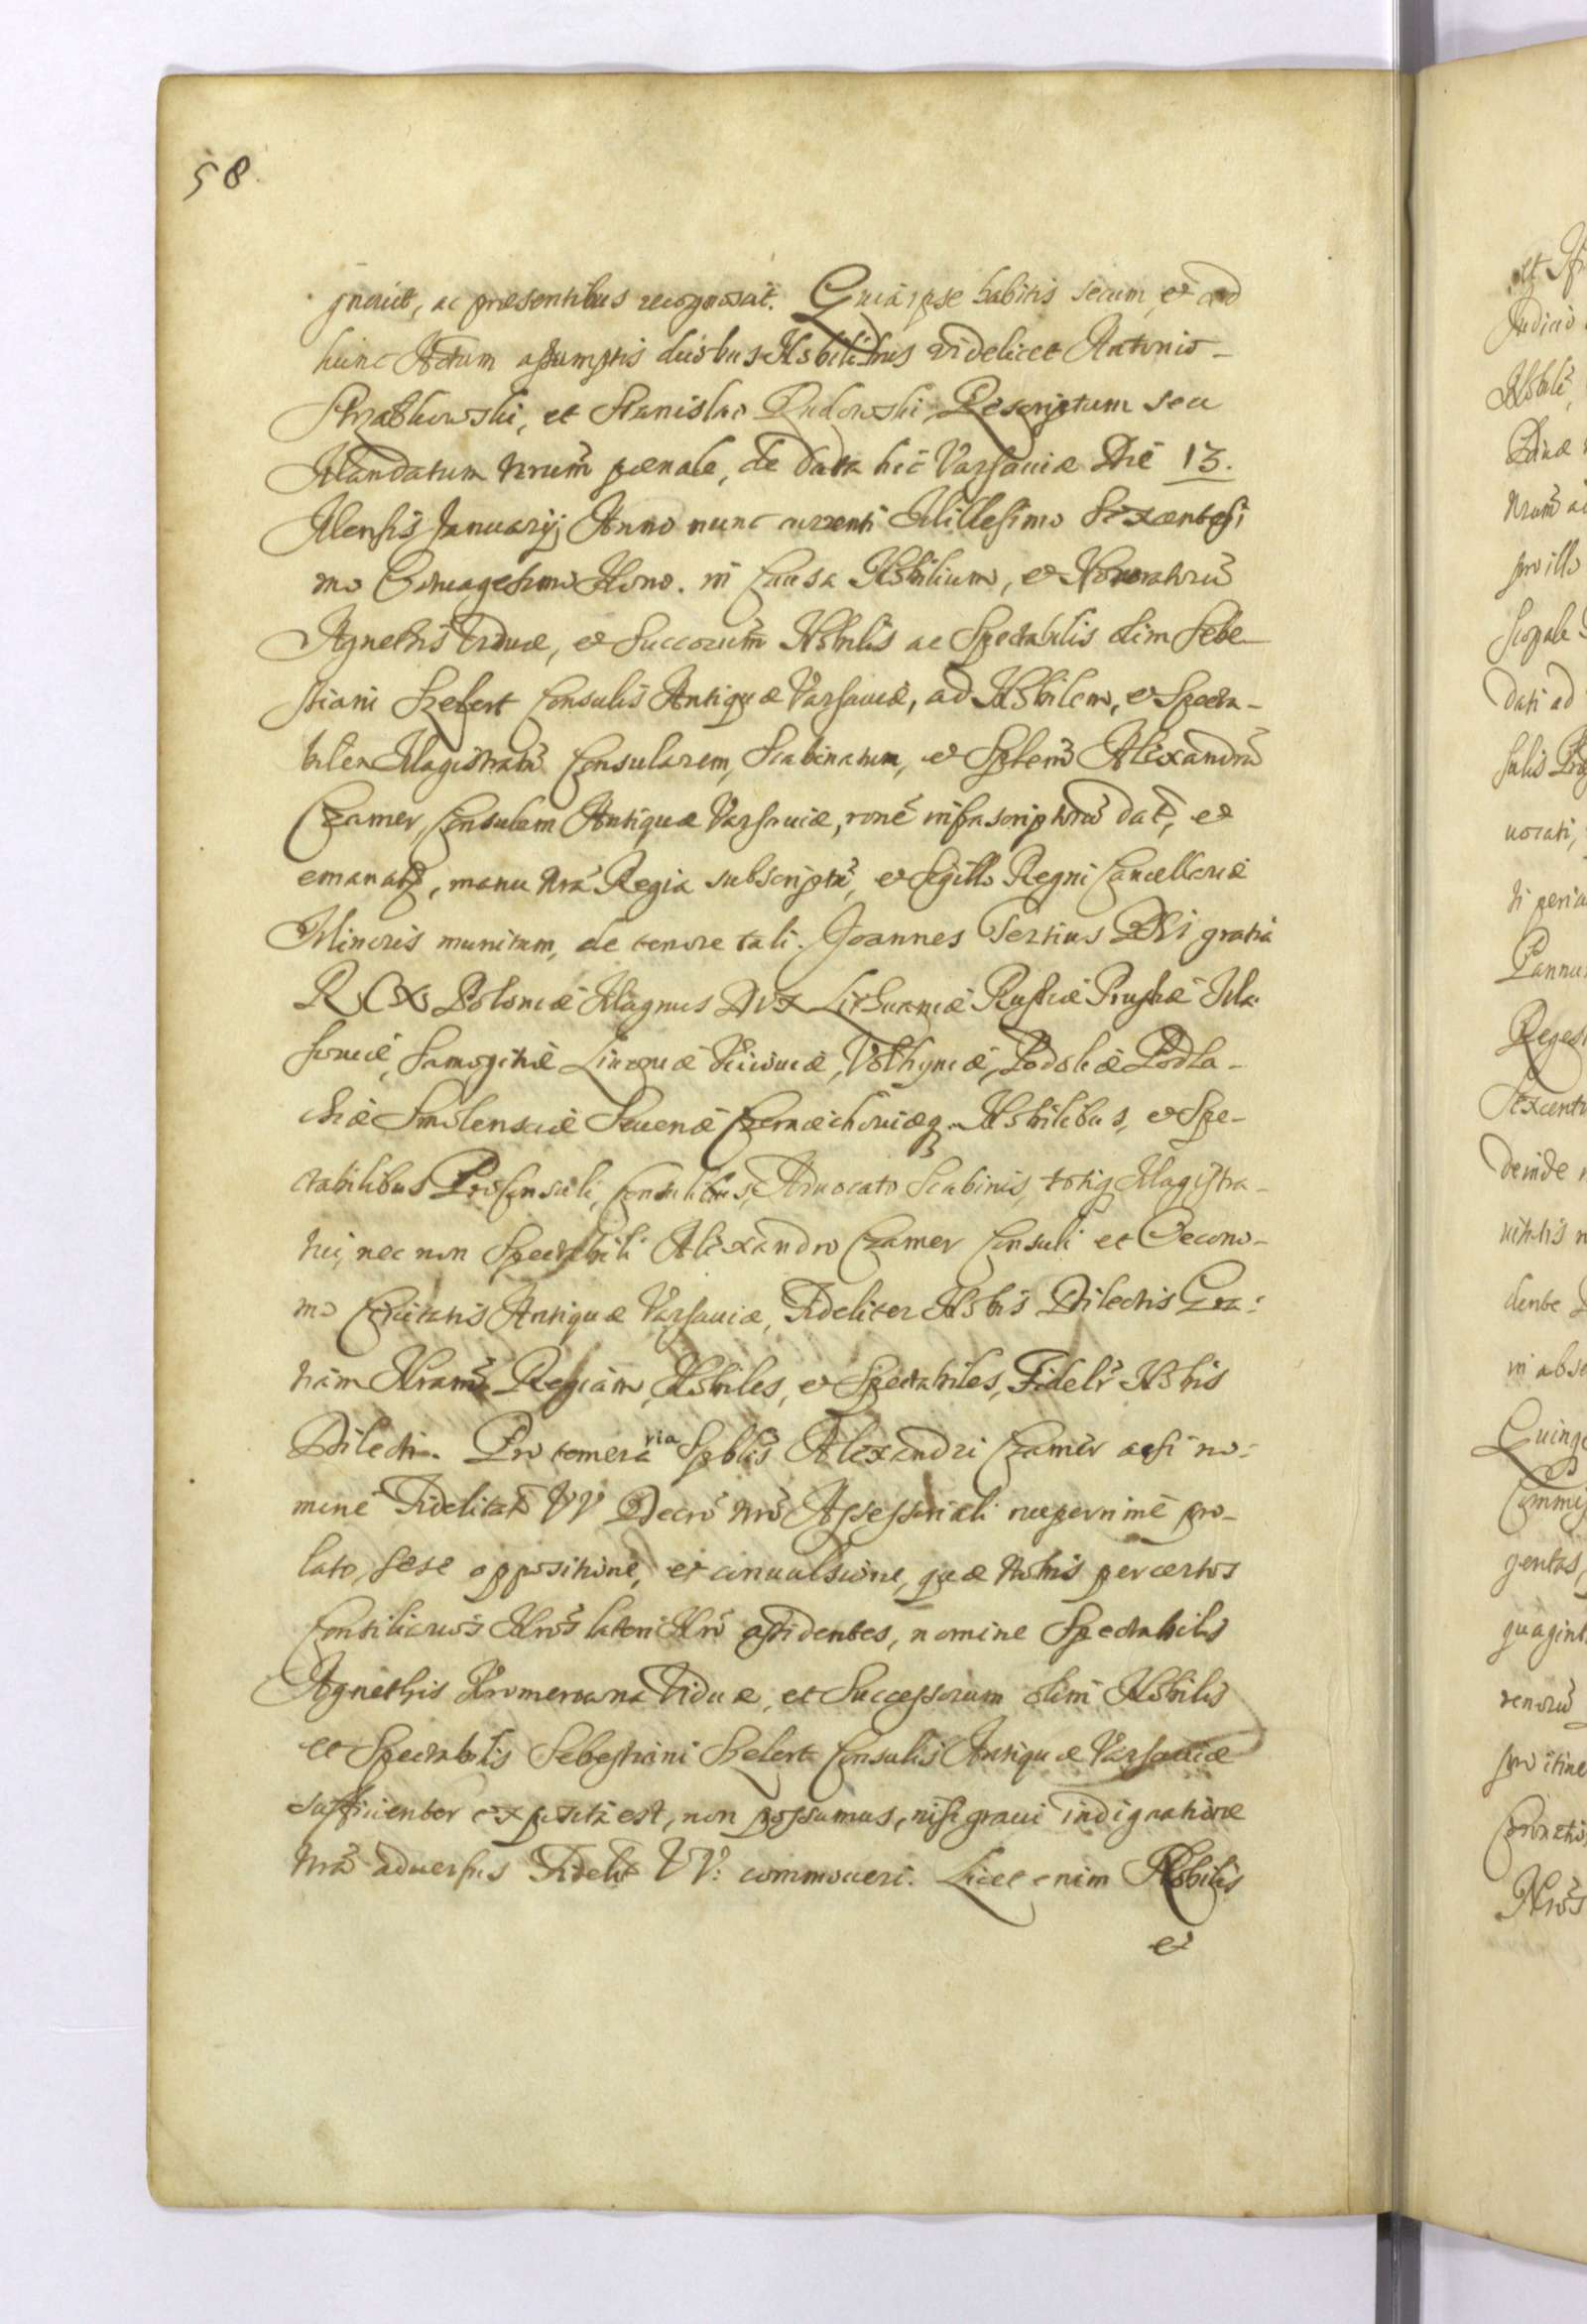 58.
gnovit, ac præsentibus recognoscit. Quia ipse habitis secum, et ad
hunc Actum assumptis duobus Nobilibus videlicet Antonio
Strzałkowski, et Stanislao Rudowski, Rescriptum seu
Mandatum nrum pænale, de data hic Varsaviæ Die 13.
Mensis Januarij Anno nunc currenti Millesimo Sexcentesi
mo Nono. in Causa Nobilium, et Honoratorũ
Agnethis Viduæ, et Successorũm Nobilis ac Spectabilis olim Seba-
stiani Szelert Consulis Antiquæ Varsaviæ, ad Nobilem, et Specta-
bilem Magistratũ Consularem, Scabinatum, et Splem̃ Alexandrũ
Czamer, Consulem Antiquæ Varsaviæ, rone infrascriptorũ dat, et
emanat, manu nra Regia subscriptũ, et Sigillo Regni Cancellariæ
Minoris munitum, de tenore tali. Joannes Tertius DEI gratia
REX Poloniæ Magnus DUX Lithuaniæ Russiæ Prussiæ Ma-
soviæ, Samogitiæ Livoniæ Kiioviæ, Volhyniæ, Podoliæ Podla-
chiæ Smolensciæ Severiæ Czerniechoviæq. Nobilibus, et Spe-
ctabilibus Proconsuli, Consulibus, Advocato Scabinis, totiq Magistra-
tui, nec non Spectabili Alexandro Czamer Consuli et Oecono-
mo Civitatis Antiquæ Varsaviæ, Fideliter Nobis Dilectis Gra:
tiam Nram Regiam, Nobiles, et Spectabiles, Fidelr Nobis
Dilecti. Pro temeraria Spblis Alexandri Czamer acsi no-
mine Fidelitat VV Decro nro Assessoriali nuperrime pro-
lato, sese oppositione, et convulsione, quæ Nobis per certos
Consiliarios Nros lateri Nro assidentes, nomine Spectabilis
Agnethis Viduæ, et Successorum olim Nobilis
et Spectabilis Sebastiani Szelert Consulis Antiquæ Varsaviæ
sufficienter exposita est, non possumus, nisi gravi indignatione
nrã adversus Fidelit VV: commoveri. Licet enim Nobilis
et